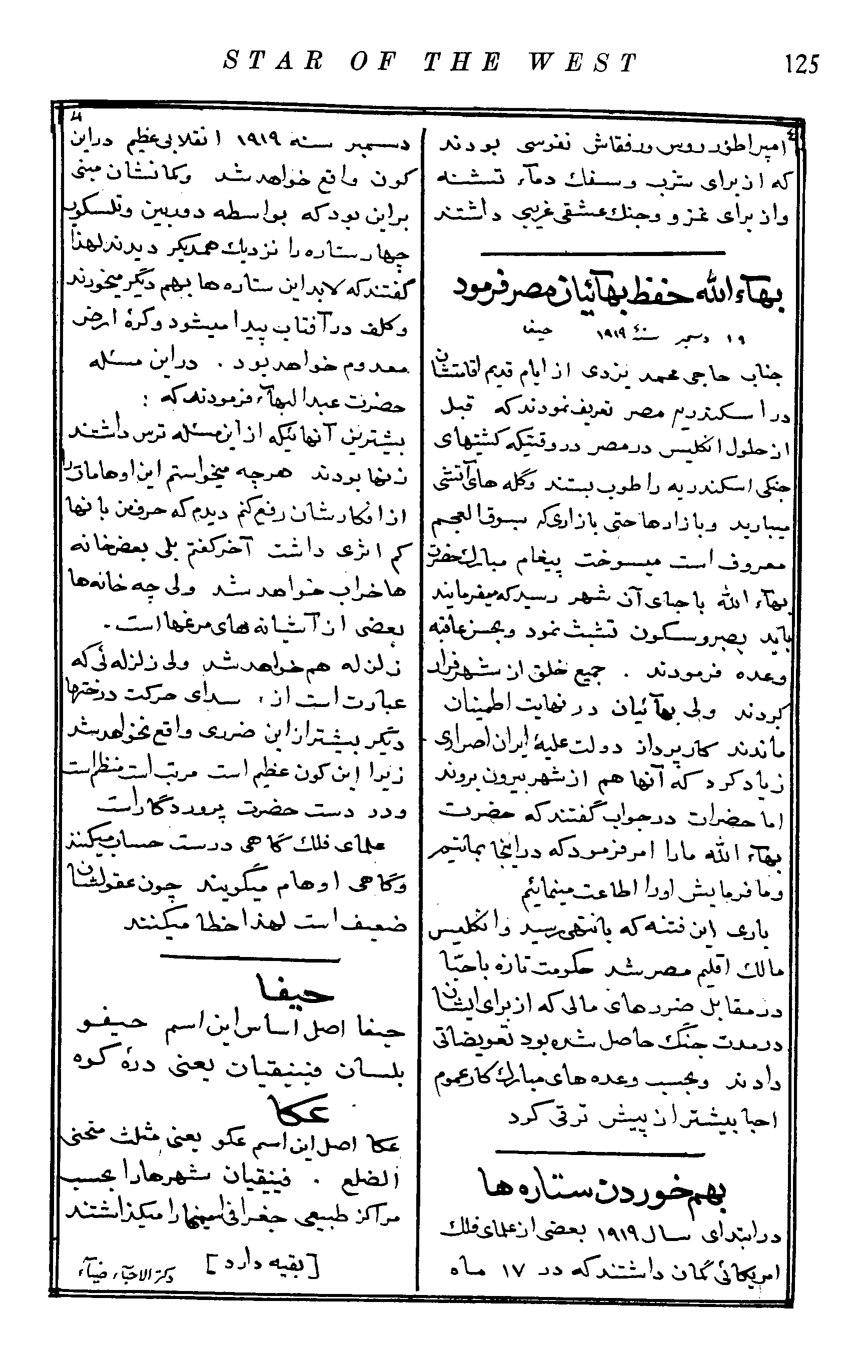 STAR OF THE WEST
125
٤
امپراطور روس ورفقاش نفوسی بودند
که از برای شرب وسفك دمآء تشنه
واز برای غزو وجنك عشقی غریبی داشتند
بهآءالله حفظ بهآئیان مصر فرمود
١٩ دسمبر سنهٔ ١٩١٩ حیفا
جناب حاجی محمد یزدی از ایام قدیم اقامتشان
در اسکندریه مصر تعریف نمودند که قبل
از حلول انکلیس در مصر دروقتیکه کشتیهای
جنکی اسکندریه را طوب بستند وگله های آتشی
میبارید وبازارها حتی بازاری که بسوق العجم
معروف است میسوخت پیغام مبارك حضرت
بهآء الله باحبای آن شهر رسید که میفرمایند
باید بصبر وسکون تشبث نمود وبحسن عاقبه
وعده فرمودند . جمیع خلق از شهر فرار
کردند ولی بهآئیان در نهایت اطمینان
ماندند کارپرداز دولت علیهٔ ایران اصراری
زیاد کرد که آنها هم از شهر بیرون بروند
اما حضرات درجواب گفتند که حضرت
بهآء الله مارا امر فرمود که در اینجا بمانیم
وما فرمایش اورا اطاعت مینمائیم
باری این فتنه که بانتهی رسید وانکلیس
مالك اقلیم مصر شد حکومت تازه باحبّا
در مقابل ضررهای مالی که از برای ایشان
درمدت جنگ حاصل شده بود تعویضاتی
دادند وبحسب وعده های مبارك کار عموم
احبا بیشتر از پیش ترقی کرد
بهم خوردن ستاره ها
در ابتدای سال ١٩١٩ بعضی از علمای فلك
امریکائی گمان داشتند که در ١٧ ماه
دسمبر سنه ١٩١٩ انقلابی عظیم دراین
کون واقع خواهد شد وکمانشان مبنی
براین بود که بواسطه دوربین وتلسکوپ
چهار ستاره را نزدیك همدیکر دیدند لهذا
گفتند که لابد این ستاره ها بهم دیگر میخورند
وکلف در آفتاب پیدا میشود وکرهٔ ارض
معدوم خواهد بود . دراین مسئله
حضرت عبدالبهآء فرمودند که :
بیشترین آنهائیکه از این مسئله ترس داشتند
زنها بودند هرچه میخواستم این اوهامات را
از افکارشان رفع کنم دیدم که حرف من بانها
کم اثری داشت آخر گفتم بلی بعض خانه
ها خراب خواهد شد ولی چه خانه ها
بعضی از آشیانه های مرغها است .
زلزله هم خواهد شد ولی زلزله ئی که
عبارت است از صدای حرکت درختها
دیگر بیشتر از این ضرری واقع نخواهد شد
زیرا این کون عظیم است مرتب است منظم است
ودر دست حضرت پروردگار است
علمای فلك گاهی درست حساب میکنند
وگاهی اوهام میگویند چون عقولشان
ضعیف است لهذا خطا میکنند
حیفا
حیفا اصل اساس این اسم حیفو
بلسان فینیقیان یعنی درهٔ کوه
عکا
عکا اصل این اسم عکو یعنی مثلث منحنی
الضلع . فینیقیان شهرهارا بحسب
مراکز طبیعی جغرافی اسمهارا میکذاشتند
[بقیه دارد]
دکتر الاحبآء ضیآء